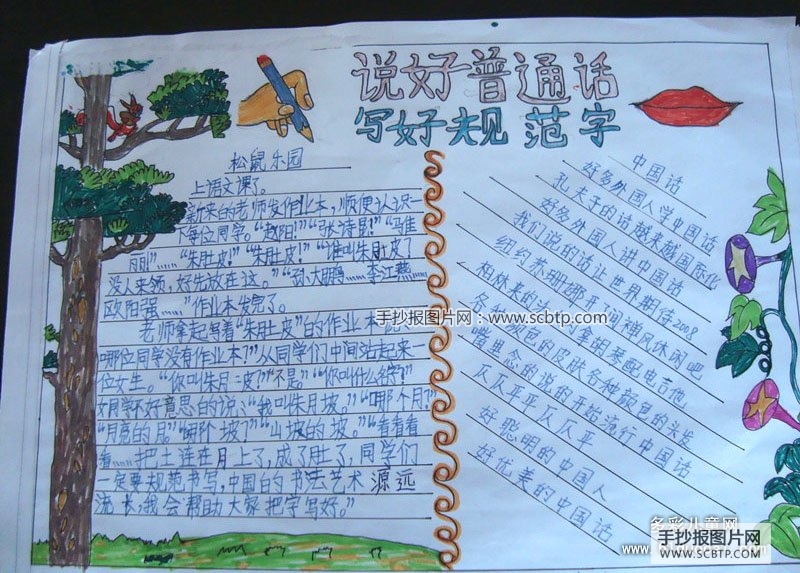 说好普通话
写好规范字
松鼠乐园
上语文课了。
新来的老师发作业本，顺便认识一
下每位同学。“赵阳！”“张诗昆！”“马佳
丽！”……“朱肚皮！”“朱肚皮！”“谁叫朱肚皮？
没人来领，好先放在这。”“孙大鹏……李江燕……
欧阳强……”作业本发完了。
老师拿起写着“朱肚皮”的作业本
哪位同学没有作业本？”从同学们中间站起来一
位女生。“你叫朱月二皮？”“不是。”“你叫什么名字？”
女同学不好意思的说：“我叫朱月坡。”“哪个月？”
“月亮的月。”“哪个坡？”“山坡的坡。”“看看看
看……把土连在月上了，成了肚了，同学们
一定要规范书写，中国的书法艺术源远
流长，我会帮助大家把字写好。”
中国话
好多外国人学中国话
孔夫子的话越来越国际化
好多外国人讲中国话
我们说的话让世界期待2008
纽约苏珊娜开了间禅风休闲吧
柏林来的沙
拿胡琴配电吉他
各种颜色的皮肤各种颜色的头发
嘴里念的说的开始流行中国话
仄仄平平仄仄平
好聪明的中国人
好优美的中国话
手抄报图片网：www.scbtp.com
多彩儿童网
手抄报图片网
WWW.SCBTP.COM